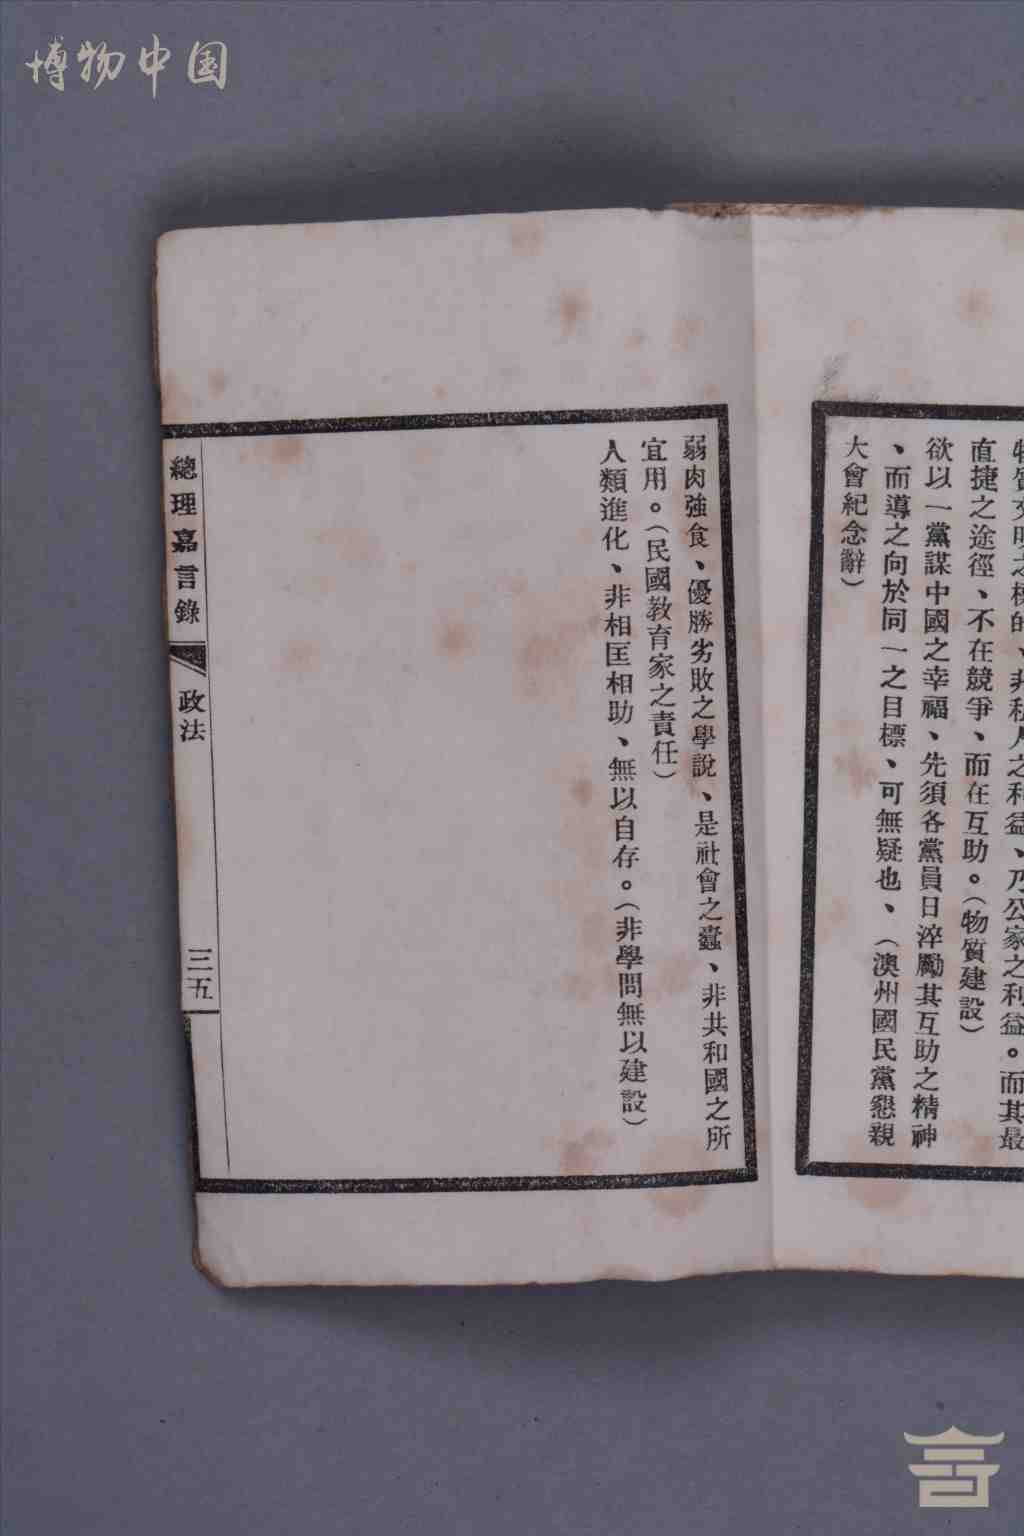 博物中国
物質文明之標的、非私人之利益、乃公家之利益。而其最
直捷之途徑、不在競爭、而在互助。（物質建設）
欲以一黨謀中國之幸福、先須各黨員日淬勵其互助之精神
、而導之向於同一之目標、可無疑也、（澳州國民黨懇親
大會紀念辭）
弱肉強食、優勝劣敗之學說、是社會之蠹、非共和國之所
宜用。（民國教育家之責任）
人類進化、非相匡相助、無以自存。（非學問無以建設）
總理嘉言錄
政法
三五